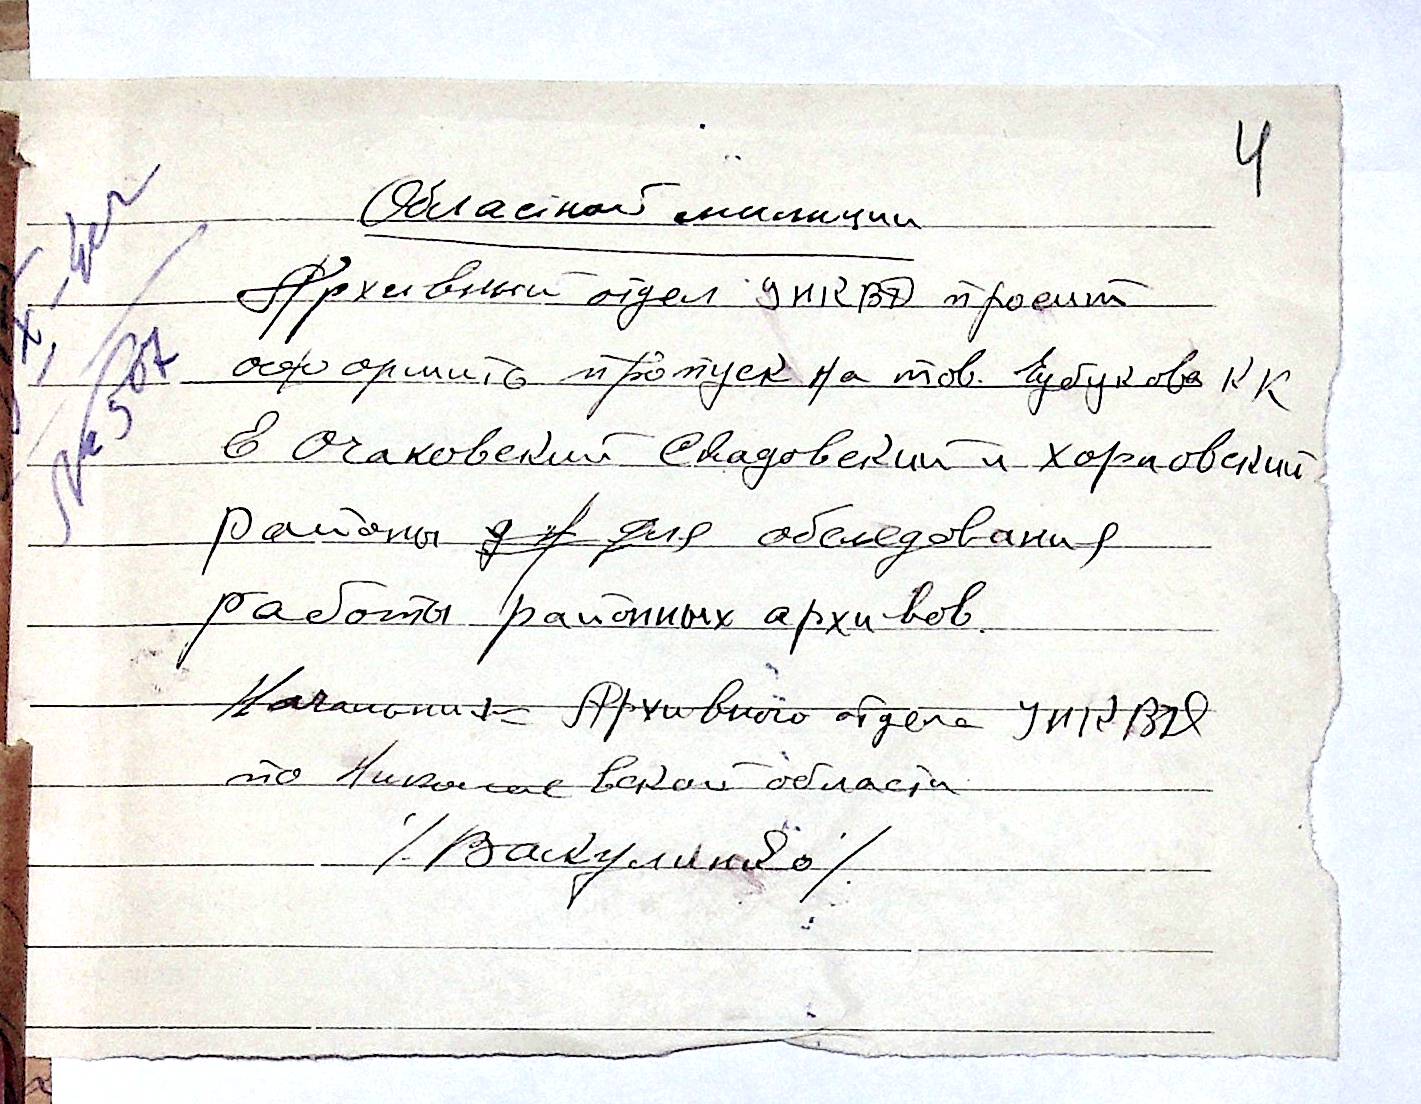 4
Областной милиции
Архивный отдел УНКВД просит
оформить пропуск на тов. КК
В Очаковский Скадовский и Хорловский
районы для обследования
работы районных архивов.
Начальник Архивного отдела УНКВД
по Николаевской области
/Вакуленко/